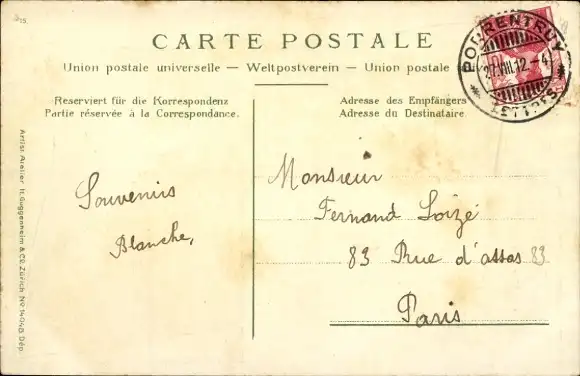 CARTE POSTALE
Union postale universelle — Weltpostverein — Union postale
Reserviert für die Korrespondenz
Partie réservée à la Correspondance.
Adresse des Empfängers
Adresse du Destinataire.
PORRENTRUY
27.VIII.12.-4
Souvenirs
Blanche,
Monsieur
Fernand Loizé
83 Rue d'assas 83
Paris
Artist. Atelier H. Guggenheim & Co. Zürich No 14048 Dép.